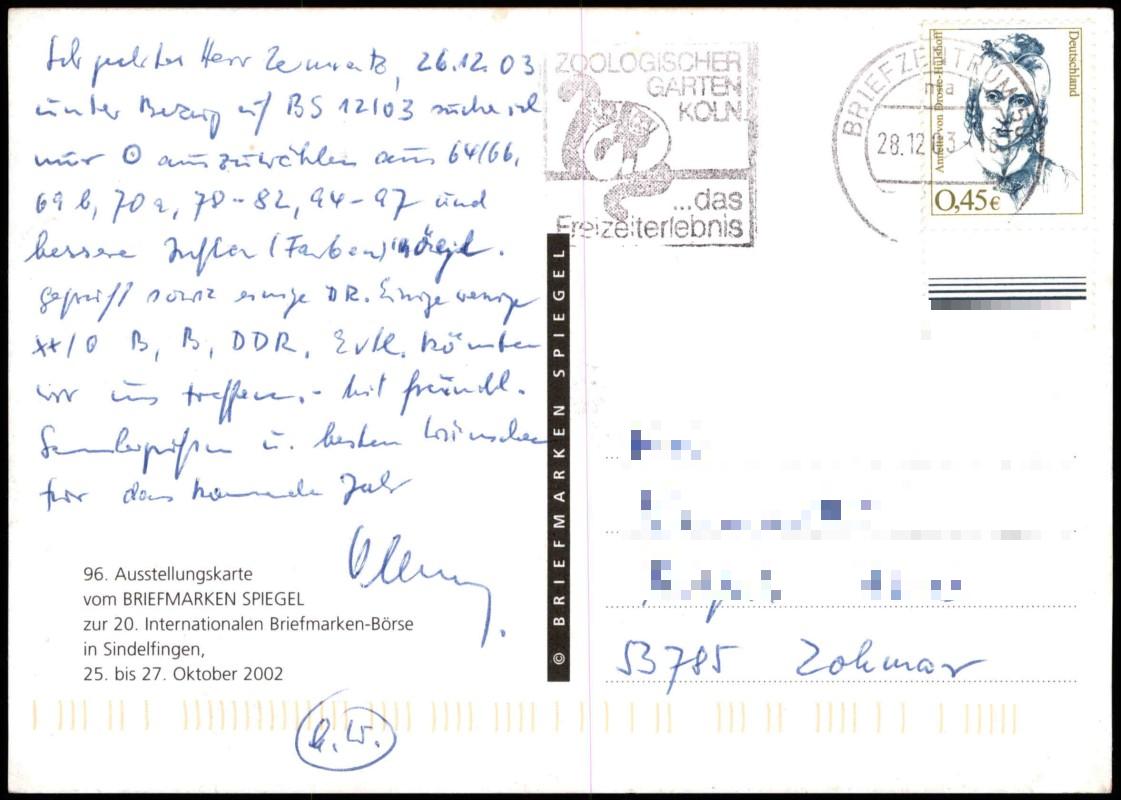 26.12.03
unter Bezug auf BS 12/03 suche ich
nur ʘ auszuwählen aus 64/66,
69 b, 70 a, 78-82, 94-97 und
bessere Infla (Farben)
geprüft sowie einige DR. Einige wenige
xx/ʘ B, B, DDR, Evtl. könnten
wir uns treffen.- Mit freundl.
Sammlergrüßen u. besten Wünschen
für das kommende Jahr
96. Ausstellungskarte
vom BRIEFMARKEN SPIEGEL
zur 20. Internationalen Briefmarken-Börse
in Sindelfingen,
25. bis 27. Oktober 2002
© BRIEFMARKEN SPIEGEL
ZOOLOGISCHER
GARTEN
KÖLN
...das
Freizeiterlebnis
BRIEFZENTRUM
28.12.03
Annette von Droste-Hülshoff
Deutschland
0,45€
53785 Lohmar